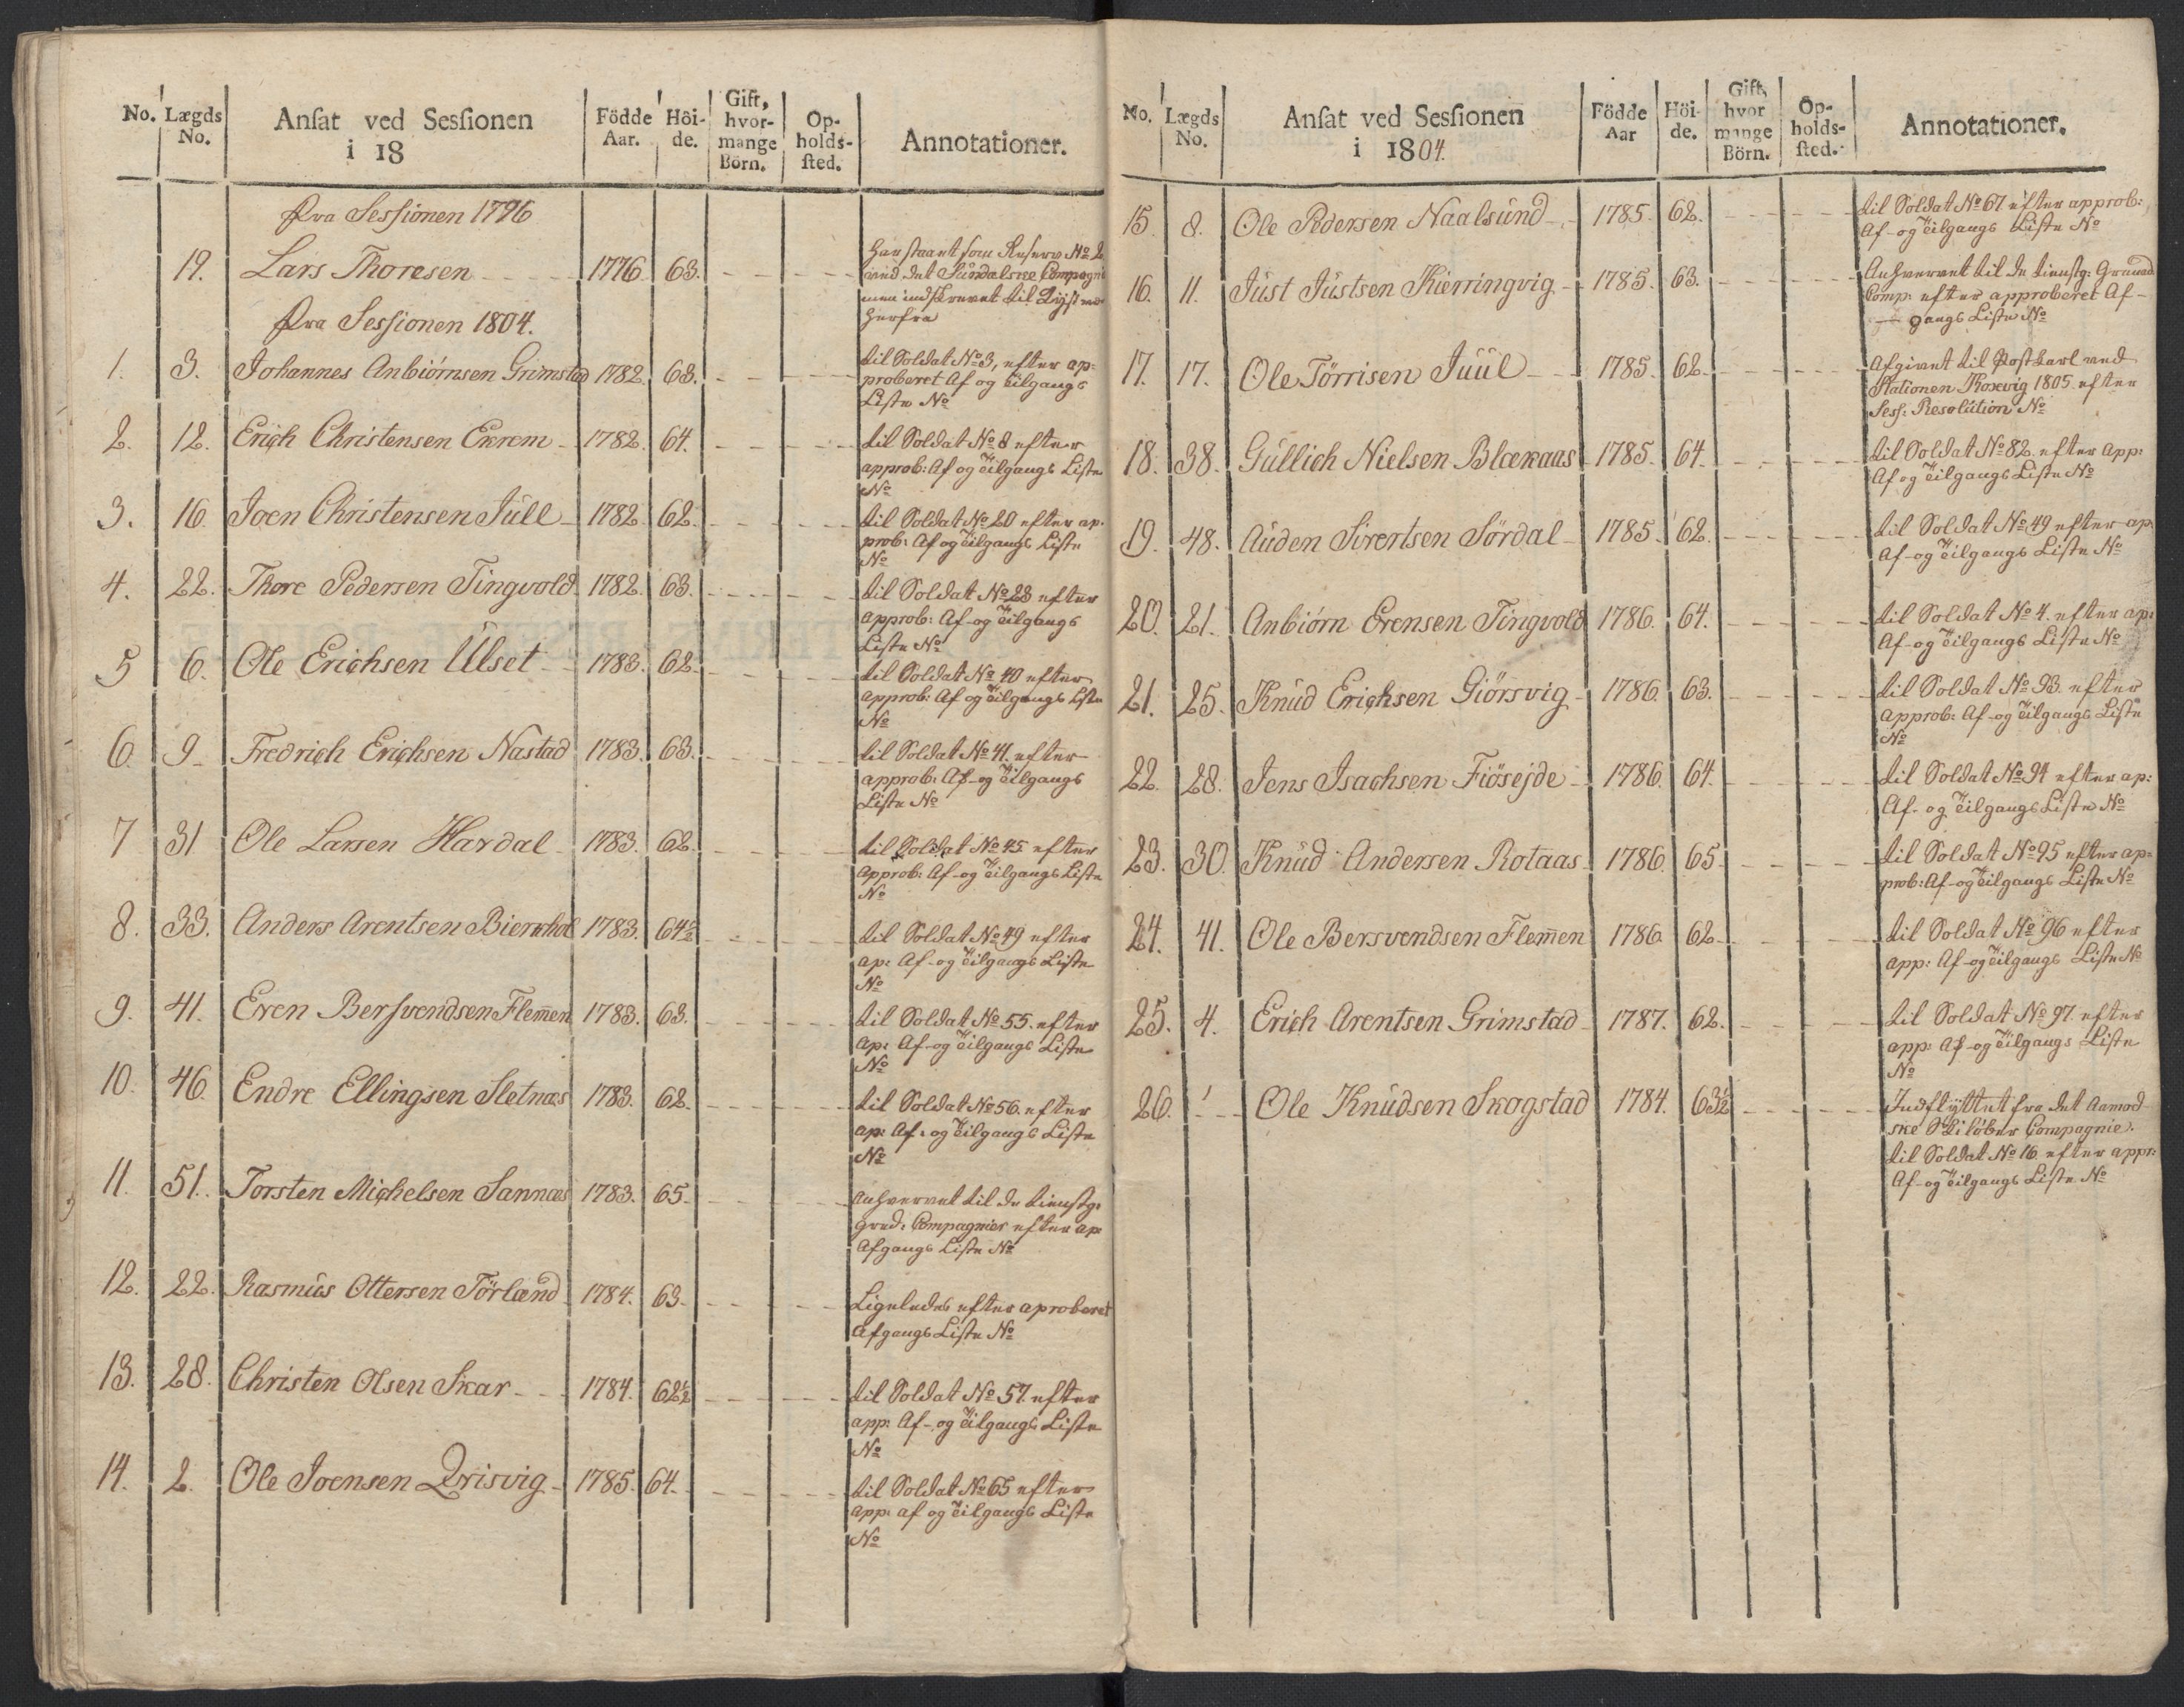 No. Lægds No. Ansat ved Sessionen i 18 Födde Aar. Höi-de. Gift, hvor-mange Börn. Op-holds-sted. Annotationer.
fra Sessionen 1796
19. Lars Thoresen 1776. 63. Har staaet som Reserv No 2
ved det Sundalske Compagnie
men indskrevet til
herfra
fra Sessionen 1804.
1. 3. Johannes Anbiörnsen Grimstad 1782. 63. til Soldat No 3, efter ap-
proberet Af og Tilgangs
Liste No
2. 12. Erich Christensen Ekrem 1782. 64. til Soldat No 8 efter
approb: Af og Tilgangs Liste
No
3. 16. Joen Christensen Jüll 1782. 62. til Soldat No 20 efter ap-
prob: Af og Tilgangs Liste
No
4. 22. Thore Pedersen Tingvold 1782. 63. til Soldat No 23 efter
approb: Af- og Tilgangs
Liste No
5 6. Ole Erichsen Ülset 1783. 62. til Soldat No 40 efter
approb: Af og Tilgangs Liste
No
6. 9 Fredrich Erichsen Nastad 1783. 63. til Soldat No 41. efter
approb: Af- og Tilgangs
Liste No
7 31 Ole Larsen Hardal 1783. 62. til Soldat No 45 efter
approb: Af- og Tilgangs Liste
No
8. 33. Anders Arentsen 1783. 64½ til Soldat No 49 efter
ap: Af- og Tilgangs Liste
No
9. 41. Even Bersvendsen Flem̄en 1783. 63. til Soldat No 55. efter
ap: Af- og Tilgangs Liste
No
10. 46. Endre Ellingsen Sletnæs 1783. 62. til Soldat No 56. efter
ap: Af- og Tilgangs Liste
No
11. 51. Torsten Michelsen Sannæs 1783. 65. Anhvervet til de tienstg:
Gred: Compagnier efter ap:
Afgangs Liste No
12. 22. Rasmüs Ottersen Törlænd 1784. 63. Ligeledes efter aproberet
Afgangs Liste No
13. 28. Christen Olsen Skar 1784. 62½ til Soldat No 57. efter
app: Af- og Tilgangs Liste
No
14. 2. Ole Joensen Qvisvig 1785. 64. til Soldat No 65 efter
app: af og Tilgangs Liste
No
No. Lægds No. Ansat ved Sessionen i 1804. Födde Aar Höi-de. Gift, hvor mange Börn. Op-holds-sted. Annotationer.
15. 8. Ole Pedersen Naalsünd 1785. 62. til Soldat No 67 efter approb:
Af- og Tilgangs Liste No
16. 11. Jüst Jüstsen Kierringvig 1785. 63. Anhvervet til de tienstg: Granad
Comp: efter approberet Af-
gangs Liste No
17. 17. Ole Törrisen Jüül 1785. 62. Afgivet til Postkarl ved
Stationen Koxvig 1805. efter
Sess: Resolution No
18. 38. Güllich Nielsen Blækaas 1785. 64. til Soldat No 82. efter app:
Af og Tilgangs Liste No
19. 48. Aüden Sivertsen Sördal 1785. 62. til Soldat No 49 efter ap:
Af- og Tilgangs Liste No
20. 21. Anbiörn Evensen Tingvold 1786. 64. til Soldat No 4. efter ap:
Af- og Tilgangs Liste No
21. 25. Knüd Erichsen Giörsvig 1786. 63. til Soldat No 93. efter
approb: Af- og Tilgangs Liste
No
22. 28. Jens Isachsen Fiösejde 1786. 64. til Soldat No 94 efter ap:
Af- og Tilgangs Liste No
23. 30. Knüd Andersen Rotaas 1786. 65. til Soldat No 95 efter ap-
prob: Af- og Tilgangs Liste No
24. 41. Ole Bersvendsen Flem̄en 1786. 62. til Soldat No 96 efter
app: Af- og Tilgangs Liste No
25. 4. Erich Arentsen Grimstad 1787. 62. til Soldat No 97. efter
app: Af- og Tilgangs Liste
No
26. 1 Ole Knüdsen Skogstad 1784. 63½ Indflyttet fra det Aamod
ske Skilöber Compagnie.
til Soldat No 16. efter appr:
Af- og Tilgangs Liste No